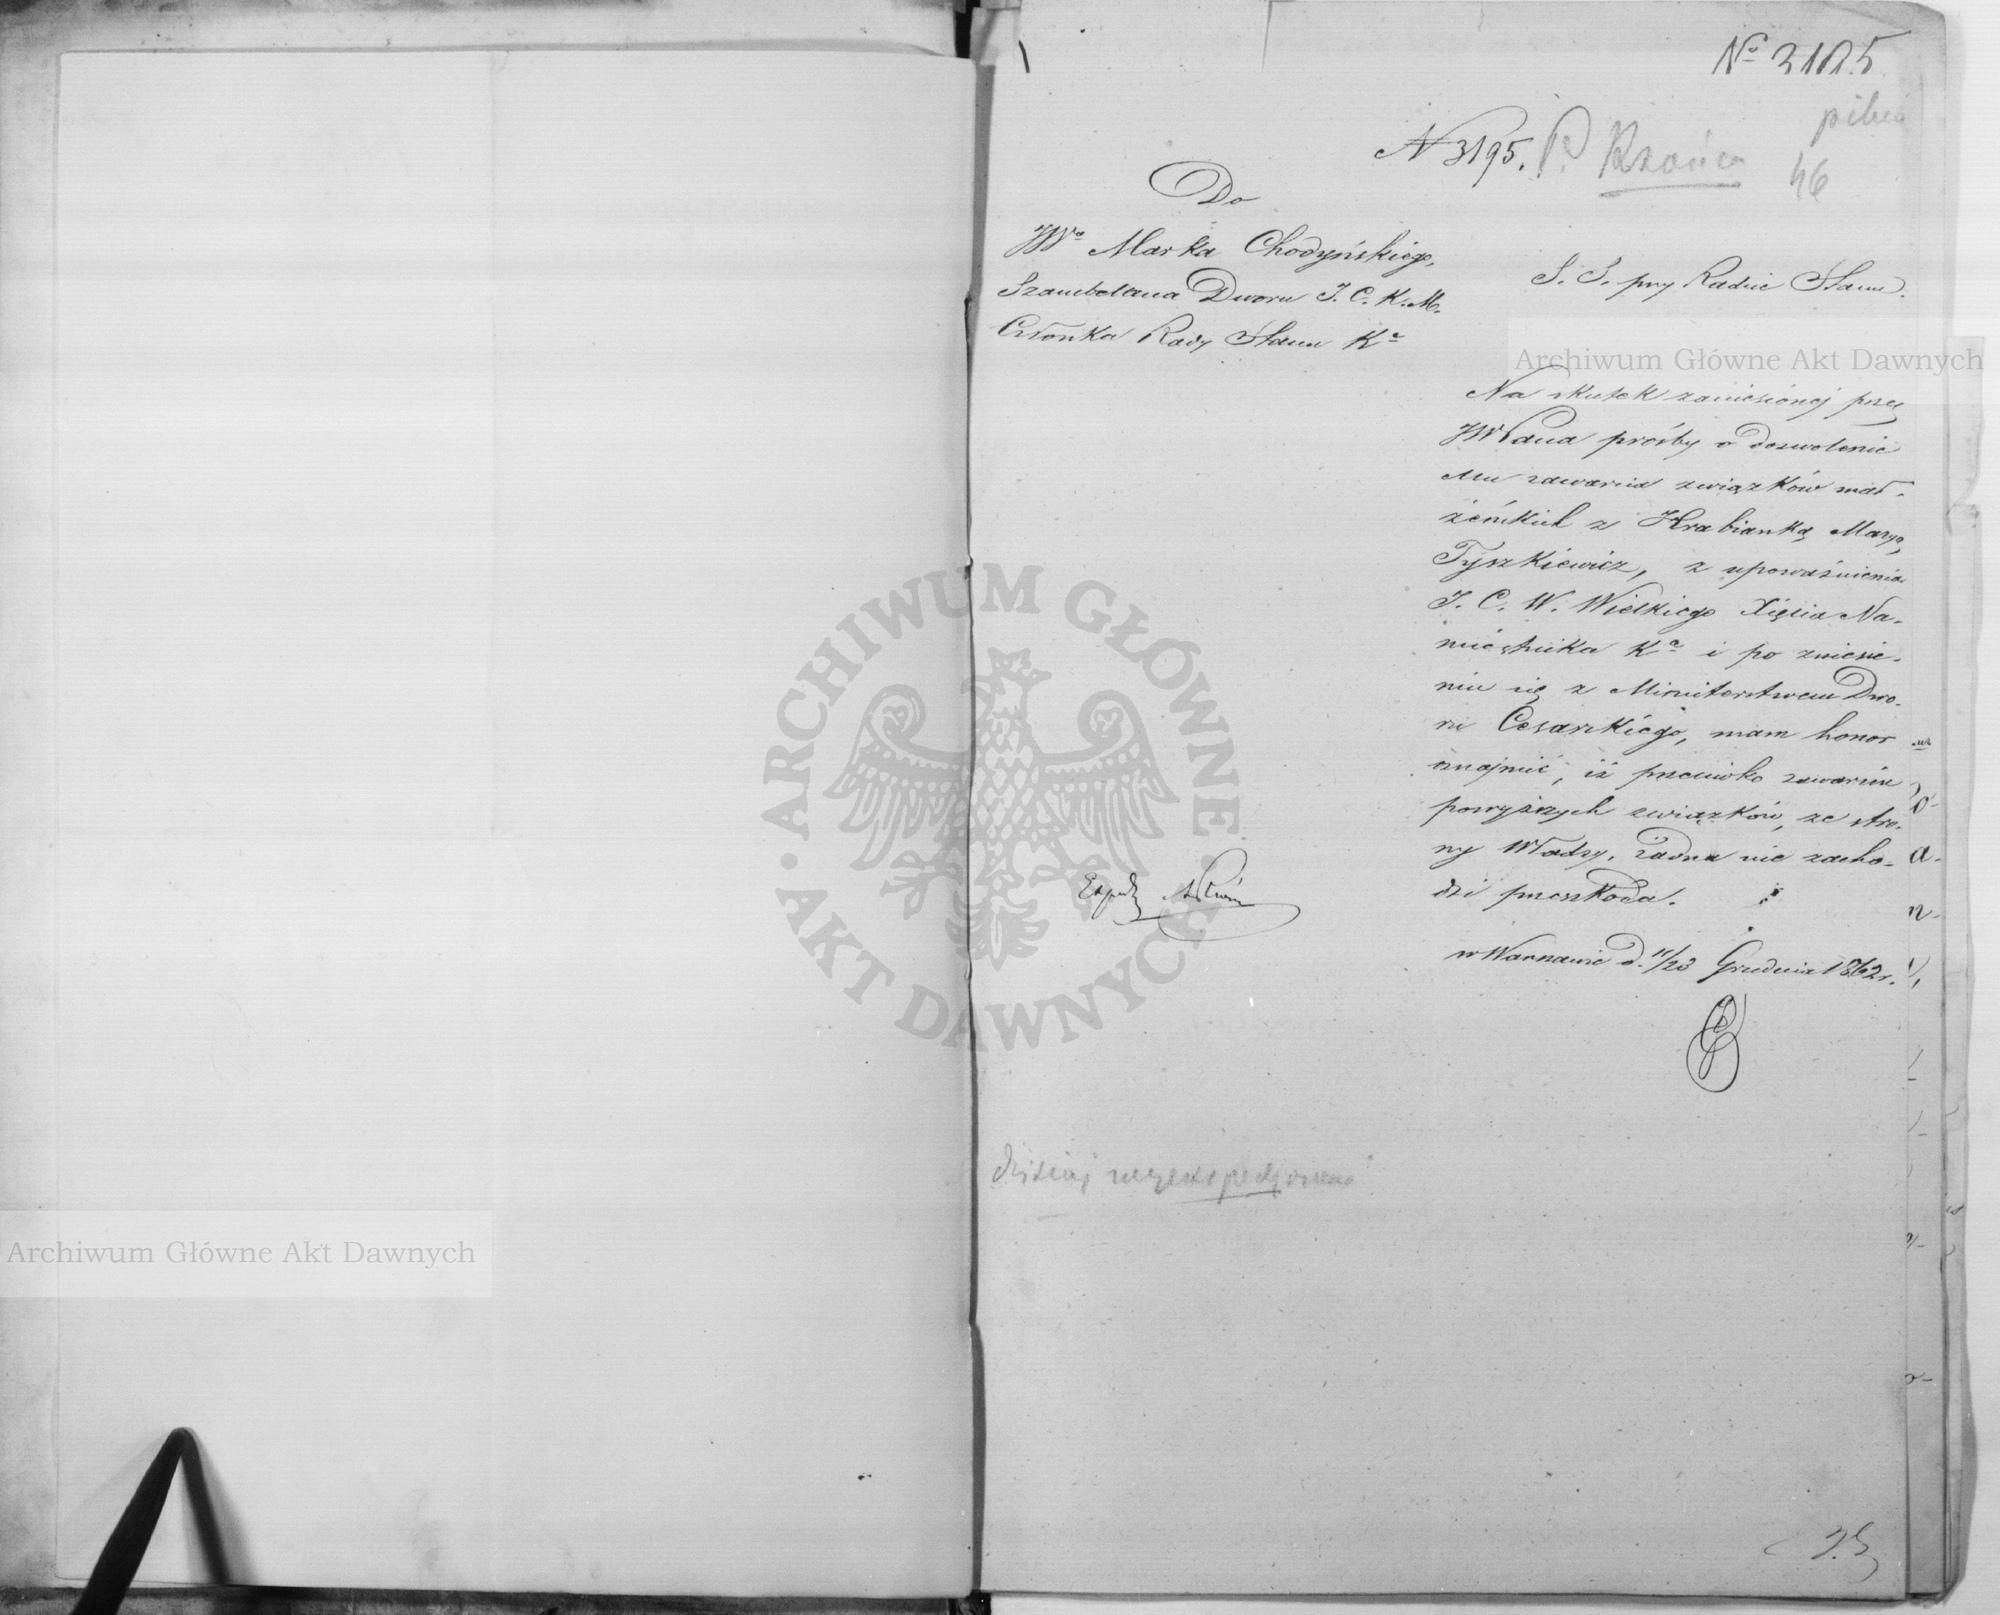 No 3195
pilne
N 3195. P. Rzońca
46
Do
JWo Marka Chodyńskiego,
Szambelana Dworu J. C. K. M.
Członka Rady Stanu Ka
S. S. przy Radzie Stanu.
Na skutek zaniesionéj przez
JWPana prośby o dozwolenie
Mu zawarcia związków mał-
żeńskich z Hrabianką Maryą
Tyszkiewicz, z upoważnienia
J. C. W. Wielkiego Xięcia Na-
miestnika Ka i po zniesie-
niu się z Ministerstwem Dwo-
ru Cesarskiego, mam honor
oznajmić, iż przeciwko zawarciu
powyższych związków, ze stro-
ny Władzy, żadna nie zacho-
dzi przeszkoda.
w Warszawie d. 11/23 Grudnia 1862 r.
dzisiaj wyekspedyowano
Archiwum Główne Akt Dawnych
Archiwum Główne Akt Dawnych
ARCHIWUM GŁÓWNE
AKT DAWNYCH